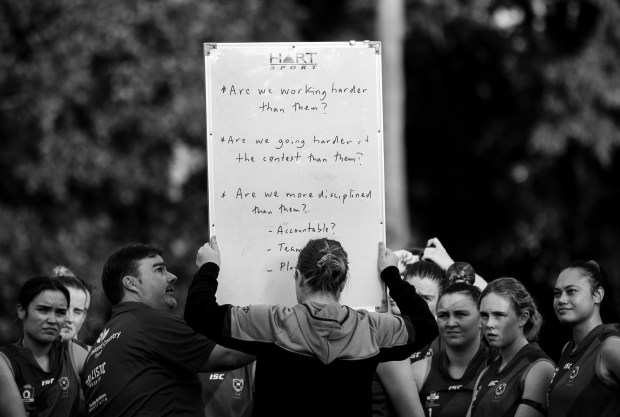 HART
SPORT
* Are we working harder
than them?
* Are we going harder at
the contest than them?
* Are we more disciplined
than them?
- Accountable?
ISC
ISC
ISC